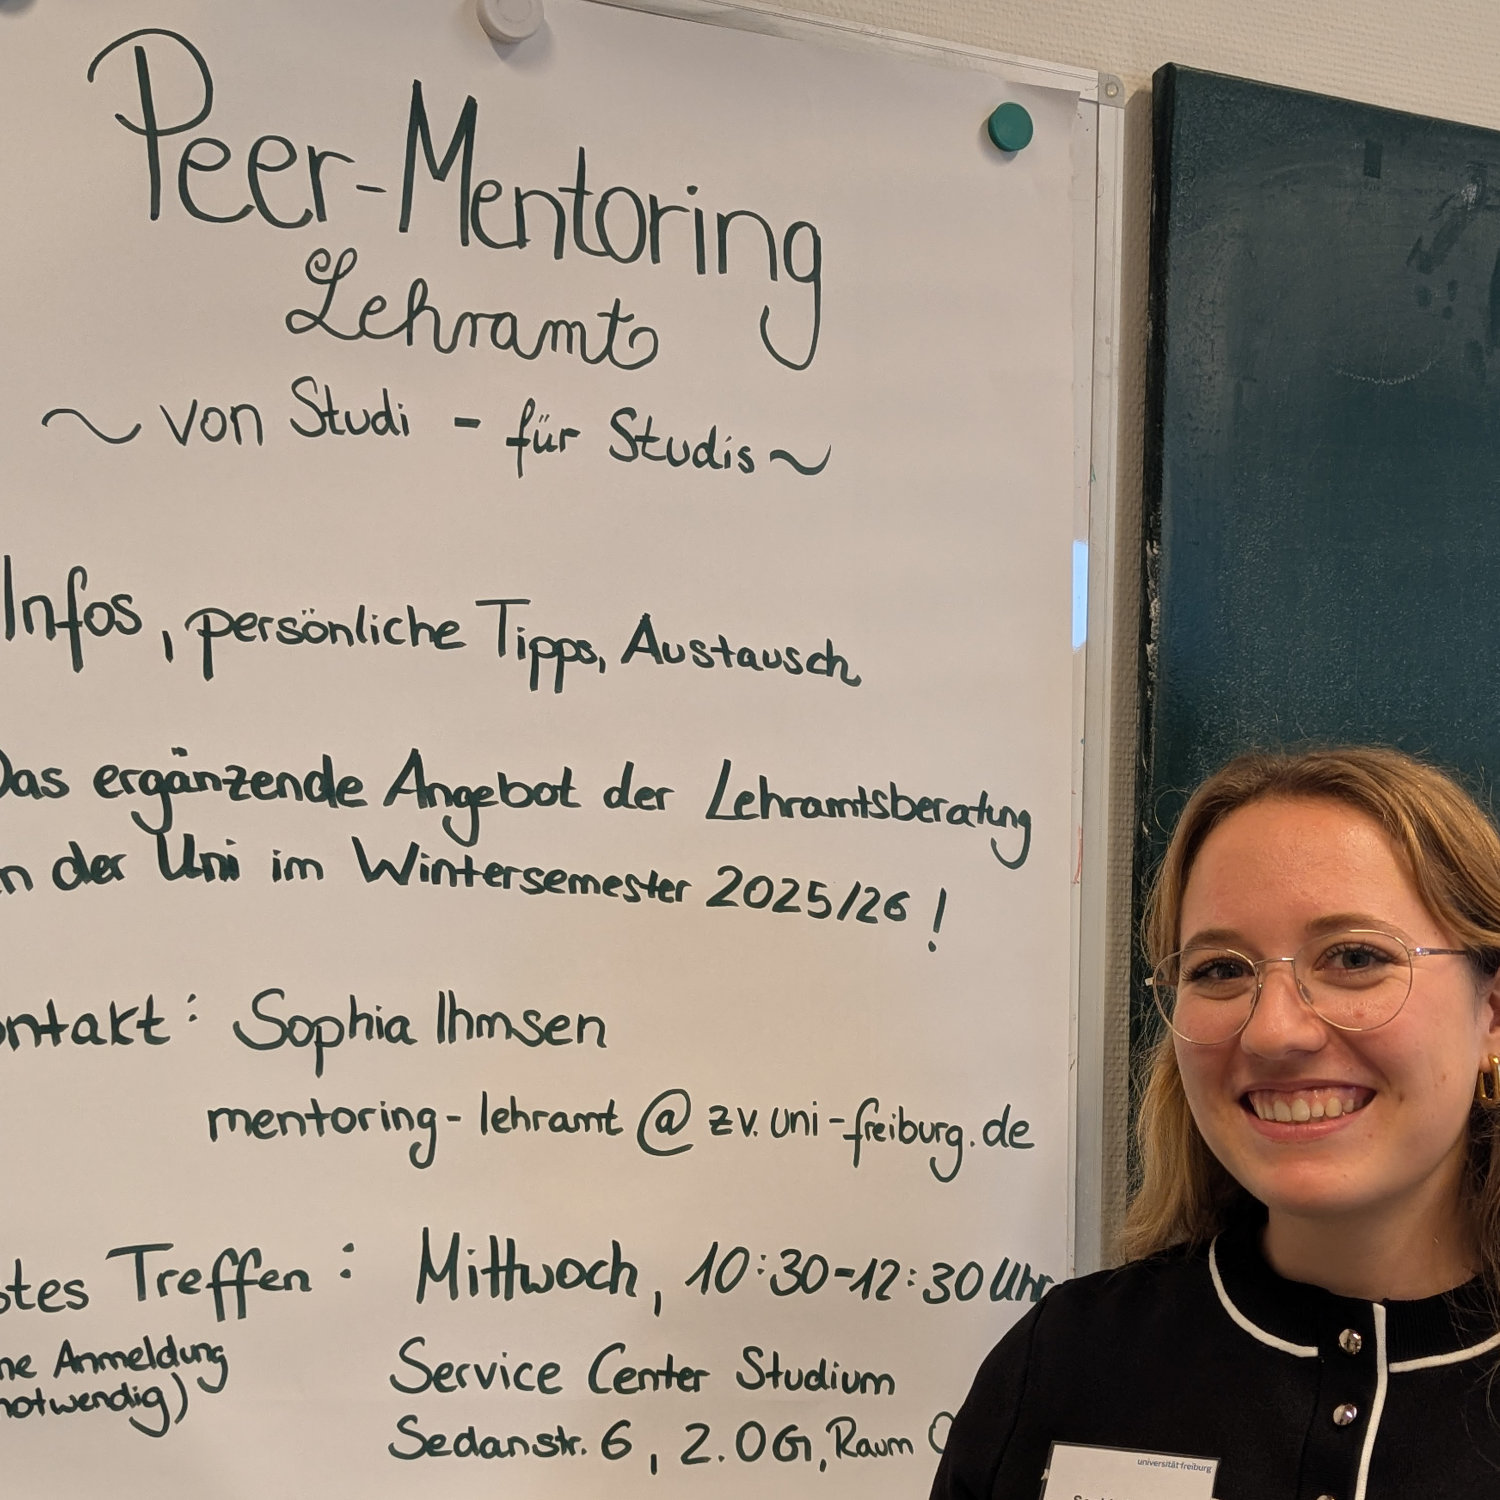 Peer-Mentoring
Lehramt
~ von Studi - für Studis ~
Infos, persönliche Tipps, Austausch
Das ergänzende Angebot der Lehramtsberatung
n der Uni im Wintersemester 2025/26!
ontakt: Sophia Ihmsen
mentoring-lehramt@zv.uni-freiburg.de
stes Treffen: Mittwoch, 10:30-12:30 Uhr
ne Anmeldung
notwendig)
Service Center Studium
Sedanstr. 6, 2.OG, Raum
universität freiburg